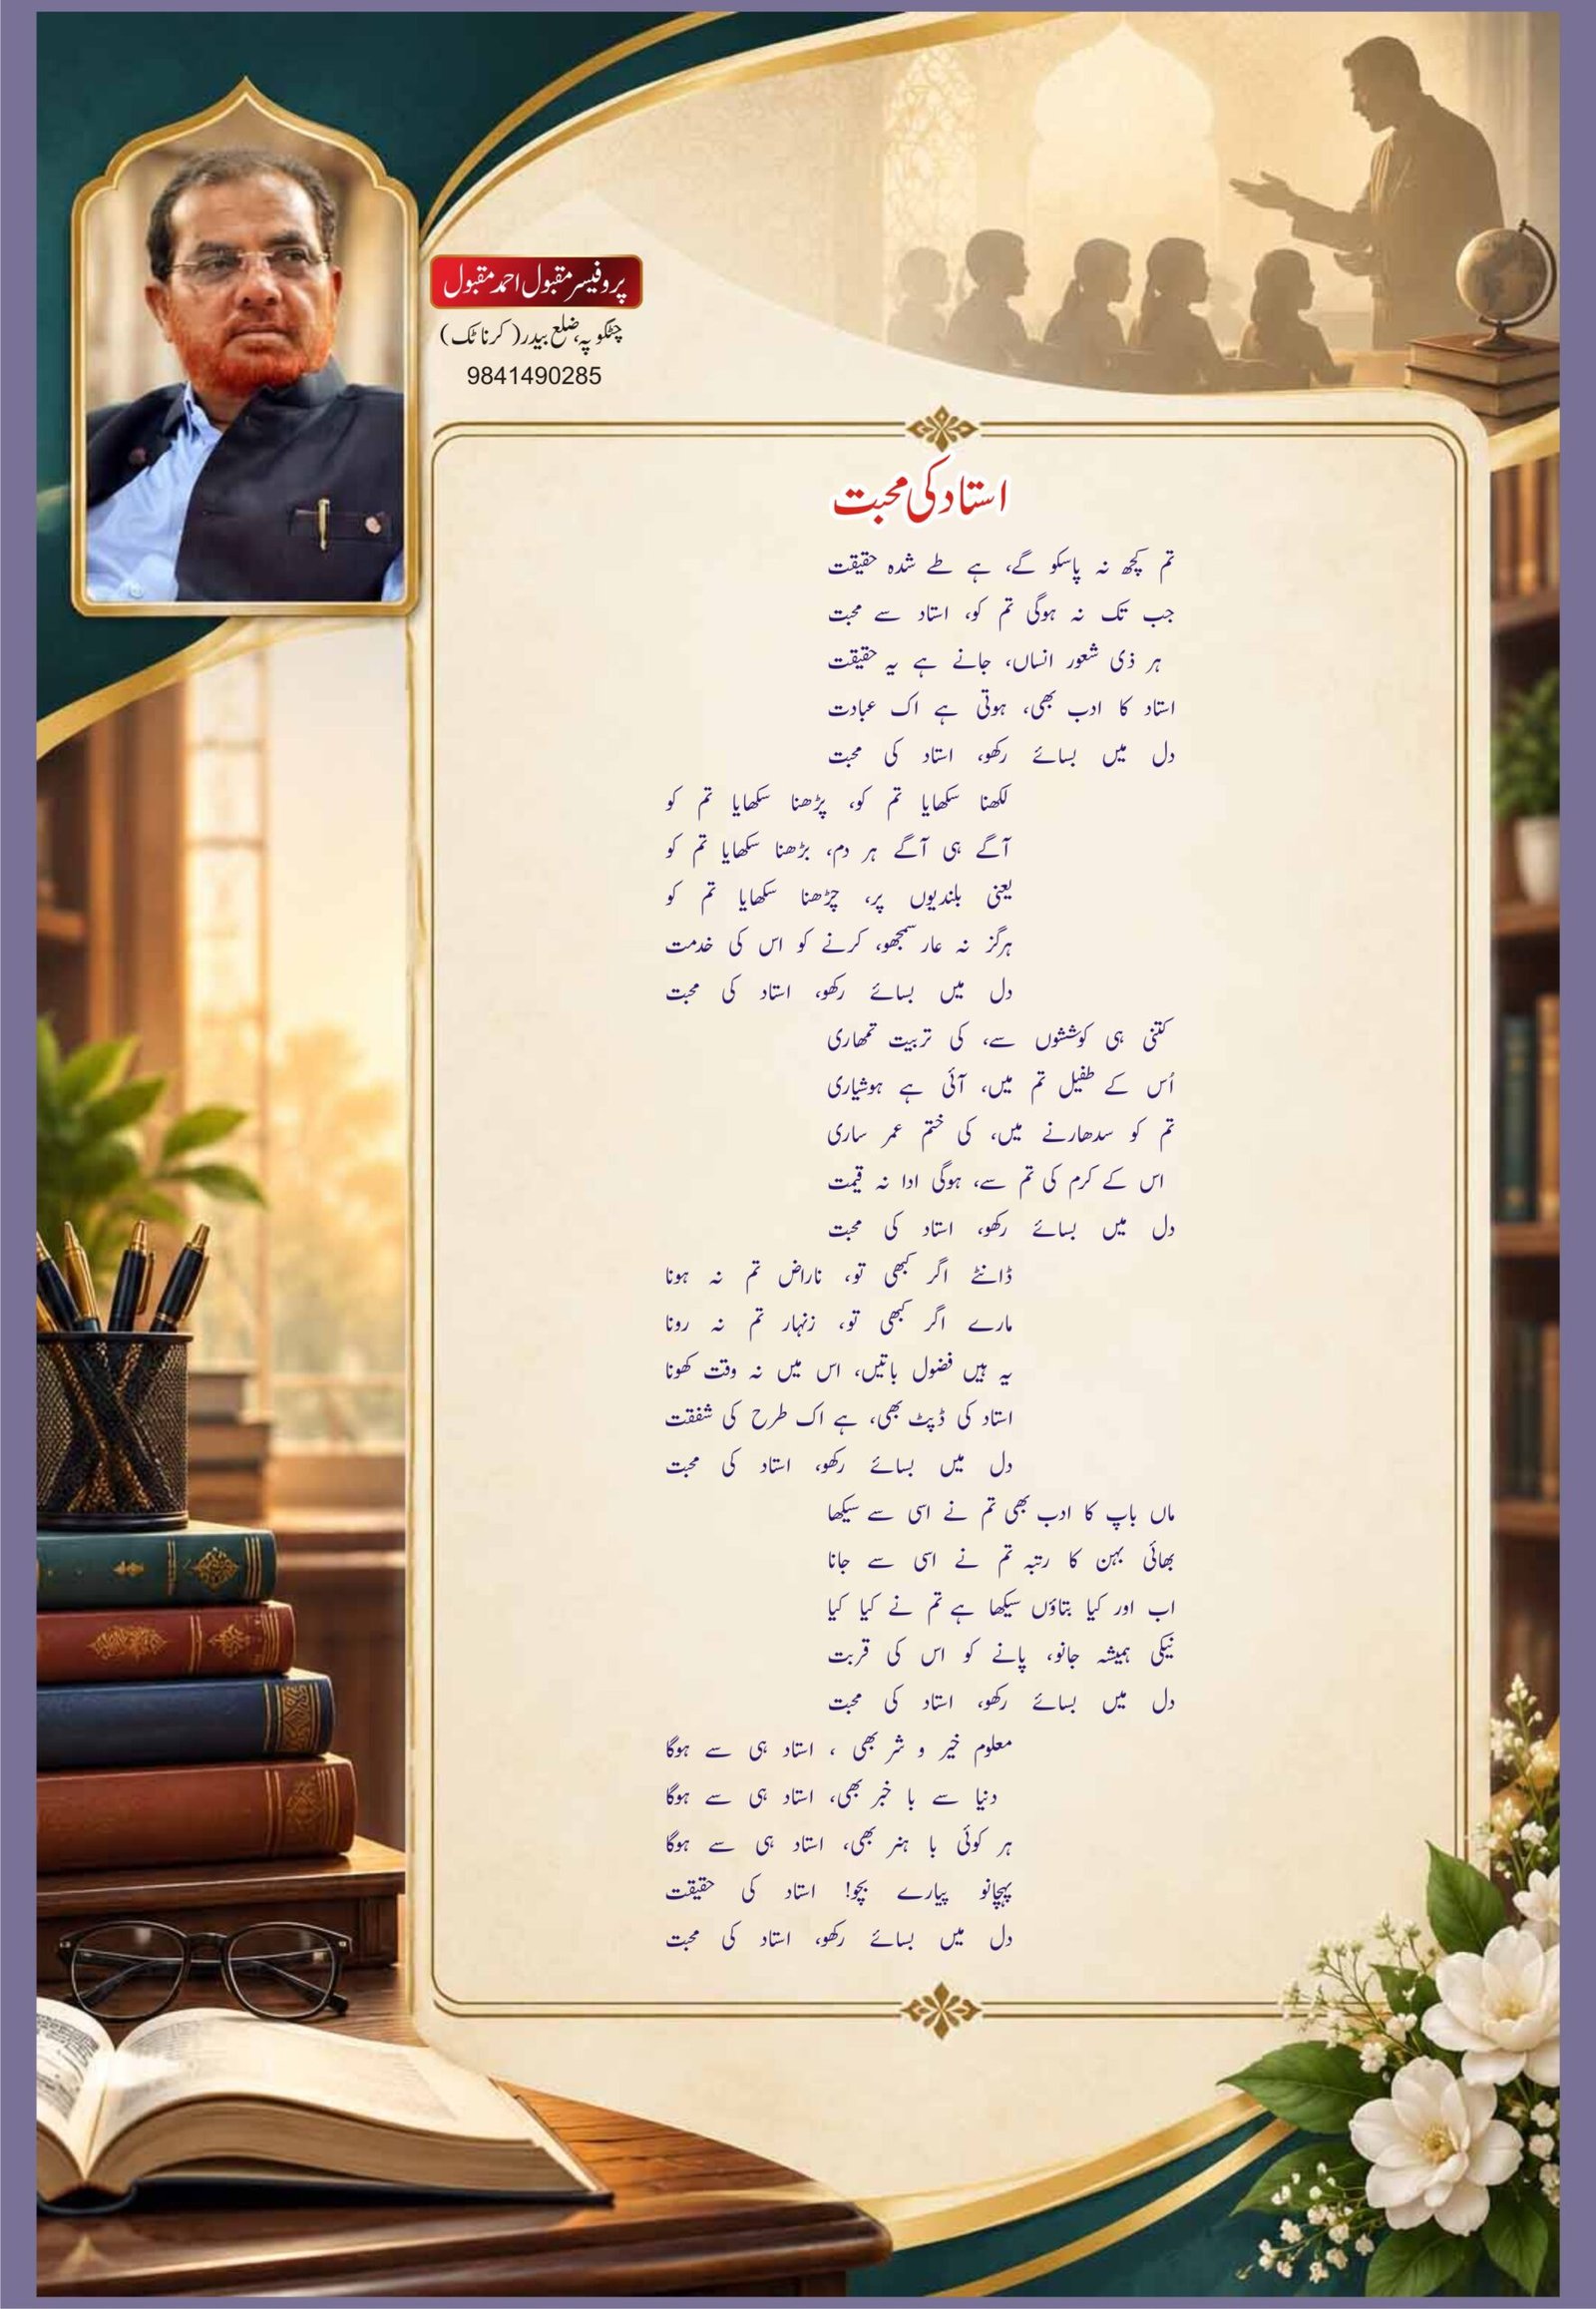 پروفیسر مقبول احمد مقبول
چٹگوپہ، ضلع بیدر (کرناٹک)
9841490285
استاد کی محبت
تم کچھ نہ پاسکو گے، ہے طے شدہ حقیقت
جب تک نہ ہوگی تم کو، استاد سے محبت
ہر ذی شعور انساں، جانے ہے یہ حقیقت
استاد کا ادب بھی، ہوتی ہے اک عبادت
دل میں بسائے رکھو، استاد کی محبت
لکھنا سکھایا تم کو، پڑھنا سکھایا تم کو
آگے ہی آگے ہر دم، بڑھنا سکھایا تم کو
یعنی بلندیوں پر، چڑھنا سکھایا تم کو
ہرگز نہ عار سمجھو، کرنے کو اس کی خدمت
دل میں بسائے رکھو، استاد کی محبت
کتنی ہی کوششوں سے، کی تربیت تمھاری
اُس کے طفیل تم میں، آئی ہے ہوشیاری
تم کو سدھارنے میں، کی ختم عمر ساری
اس کے کرم کی تم سے، ہوگی ادا نہ قیمت
دل میں بسائے رکھو، استاد کی محبت
ڈانٹے اگر کبھی تو، ناراض تم نہ ہونا
مارے اگر کبھی تو، زنہار تم نہ رونا
یہ ہیں فضول باتیں، اس میں نہ وقت کھونا
استاد کی ڈپٹ بھی، ہے اک طرح کی شفقت
دل میں بسائے رکھو، استاد کی محبت
ماں باپ کا ادب بھی تم نے اسی سے سیکھا
بھائی بہن کا رتبہ تم نے اسی سے جانا
اب اور کیا بتاؤں سیکھا ہے تم نے کیا کیا
نیکی ہمیشہ جانو، پانے کو اس کی قربت
دل میں بسائے رکھو، استاد کی محبت
معلوم خیر و شر بھی ، استاد ہی سے ہوگا
دنیا سے با خبر بھی، استاد ہی سے ہوگا
ہر کوئی با ہنر بھی، استاد ہی سے ہوگا
پہچانو پیارے بچو! استاد کی حقیقت
دل میں بسائے رکھو، استاد کی محبت